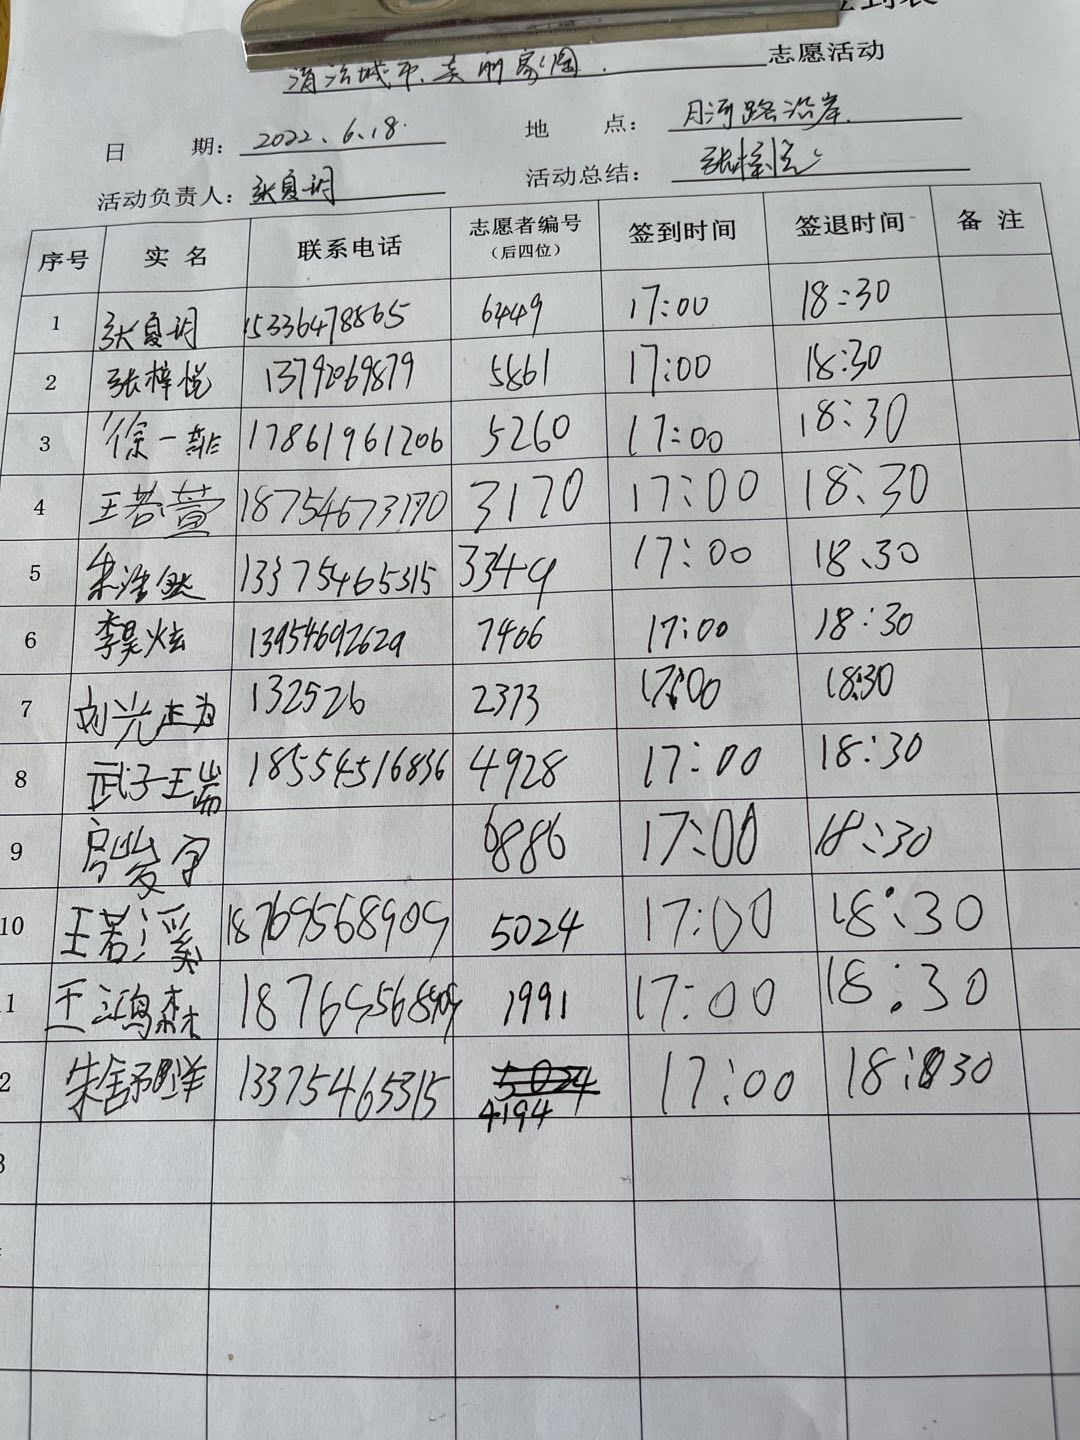 清洁城市.美丽家园. 志愿活动
日 期: 2022.6.18. 地 点: 月河路沿岸.
活动负责人: 张夏词 活动总结: 张梓悦
序号 实 名 联系电话 志愿者编号 (后四位) 签到时间 签退时间 备 注
1 张夏词 15336478865 6449 17:00 18:30
2 张梓悦 13792069879 5861 17:00 18:30
3 徐一 17861961206 5260 17:00 18:30
4 王若萱 18754673170 3170 17:00 18:30
5 朱浩然 13375465315 3349 17:00 18:30
6 李昊炫 13954692629 7406 17:00 18:30
7 刘光 132526 2373 17:00 18:30
8 武子王耑 18554516836 4928 17:00 18:30
9 6886 17:00 18:30
10 王若溪 18769568909 5024 17:00 18:30
1 王鸿森 18769568909 1991 17:00 18:30
2 朱舒 13375465315 4194 17:00 18:30
3